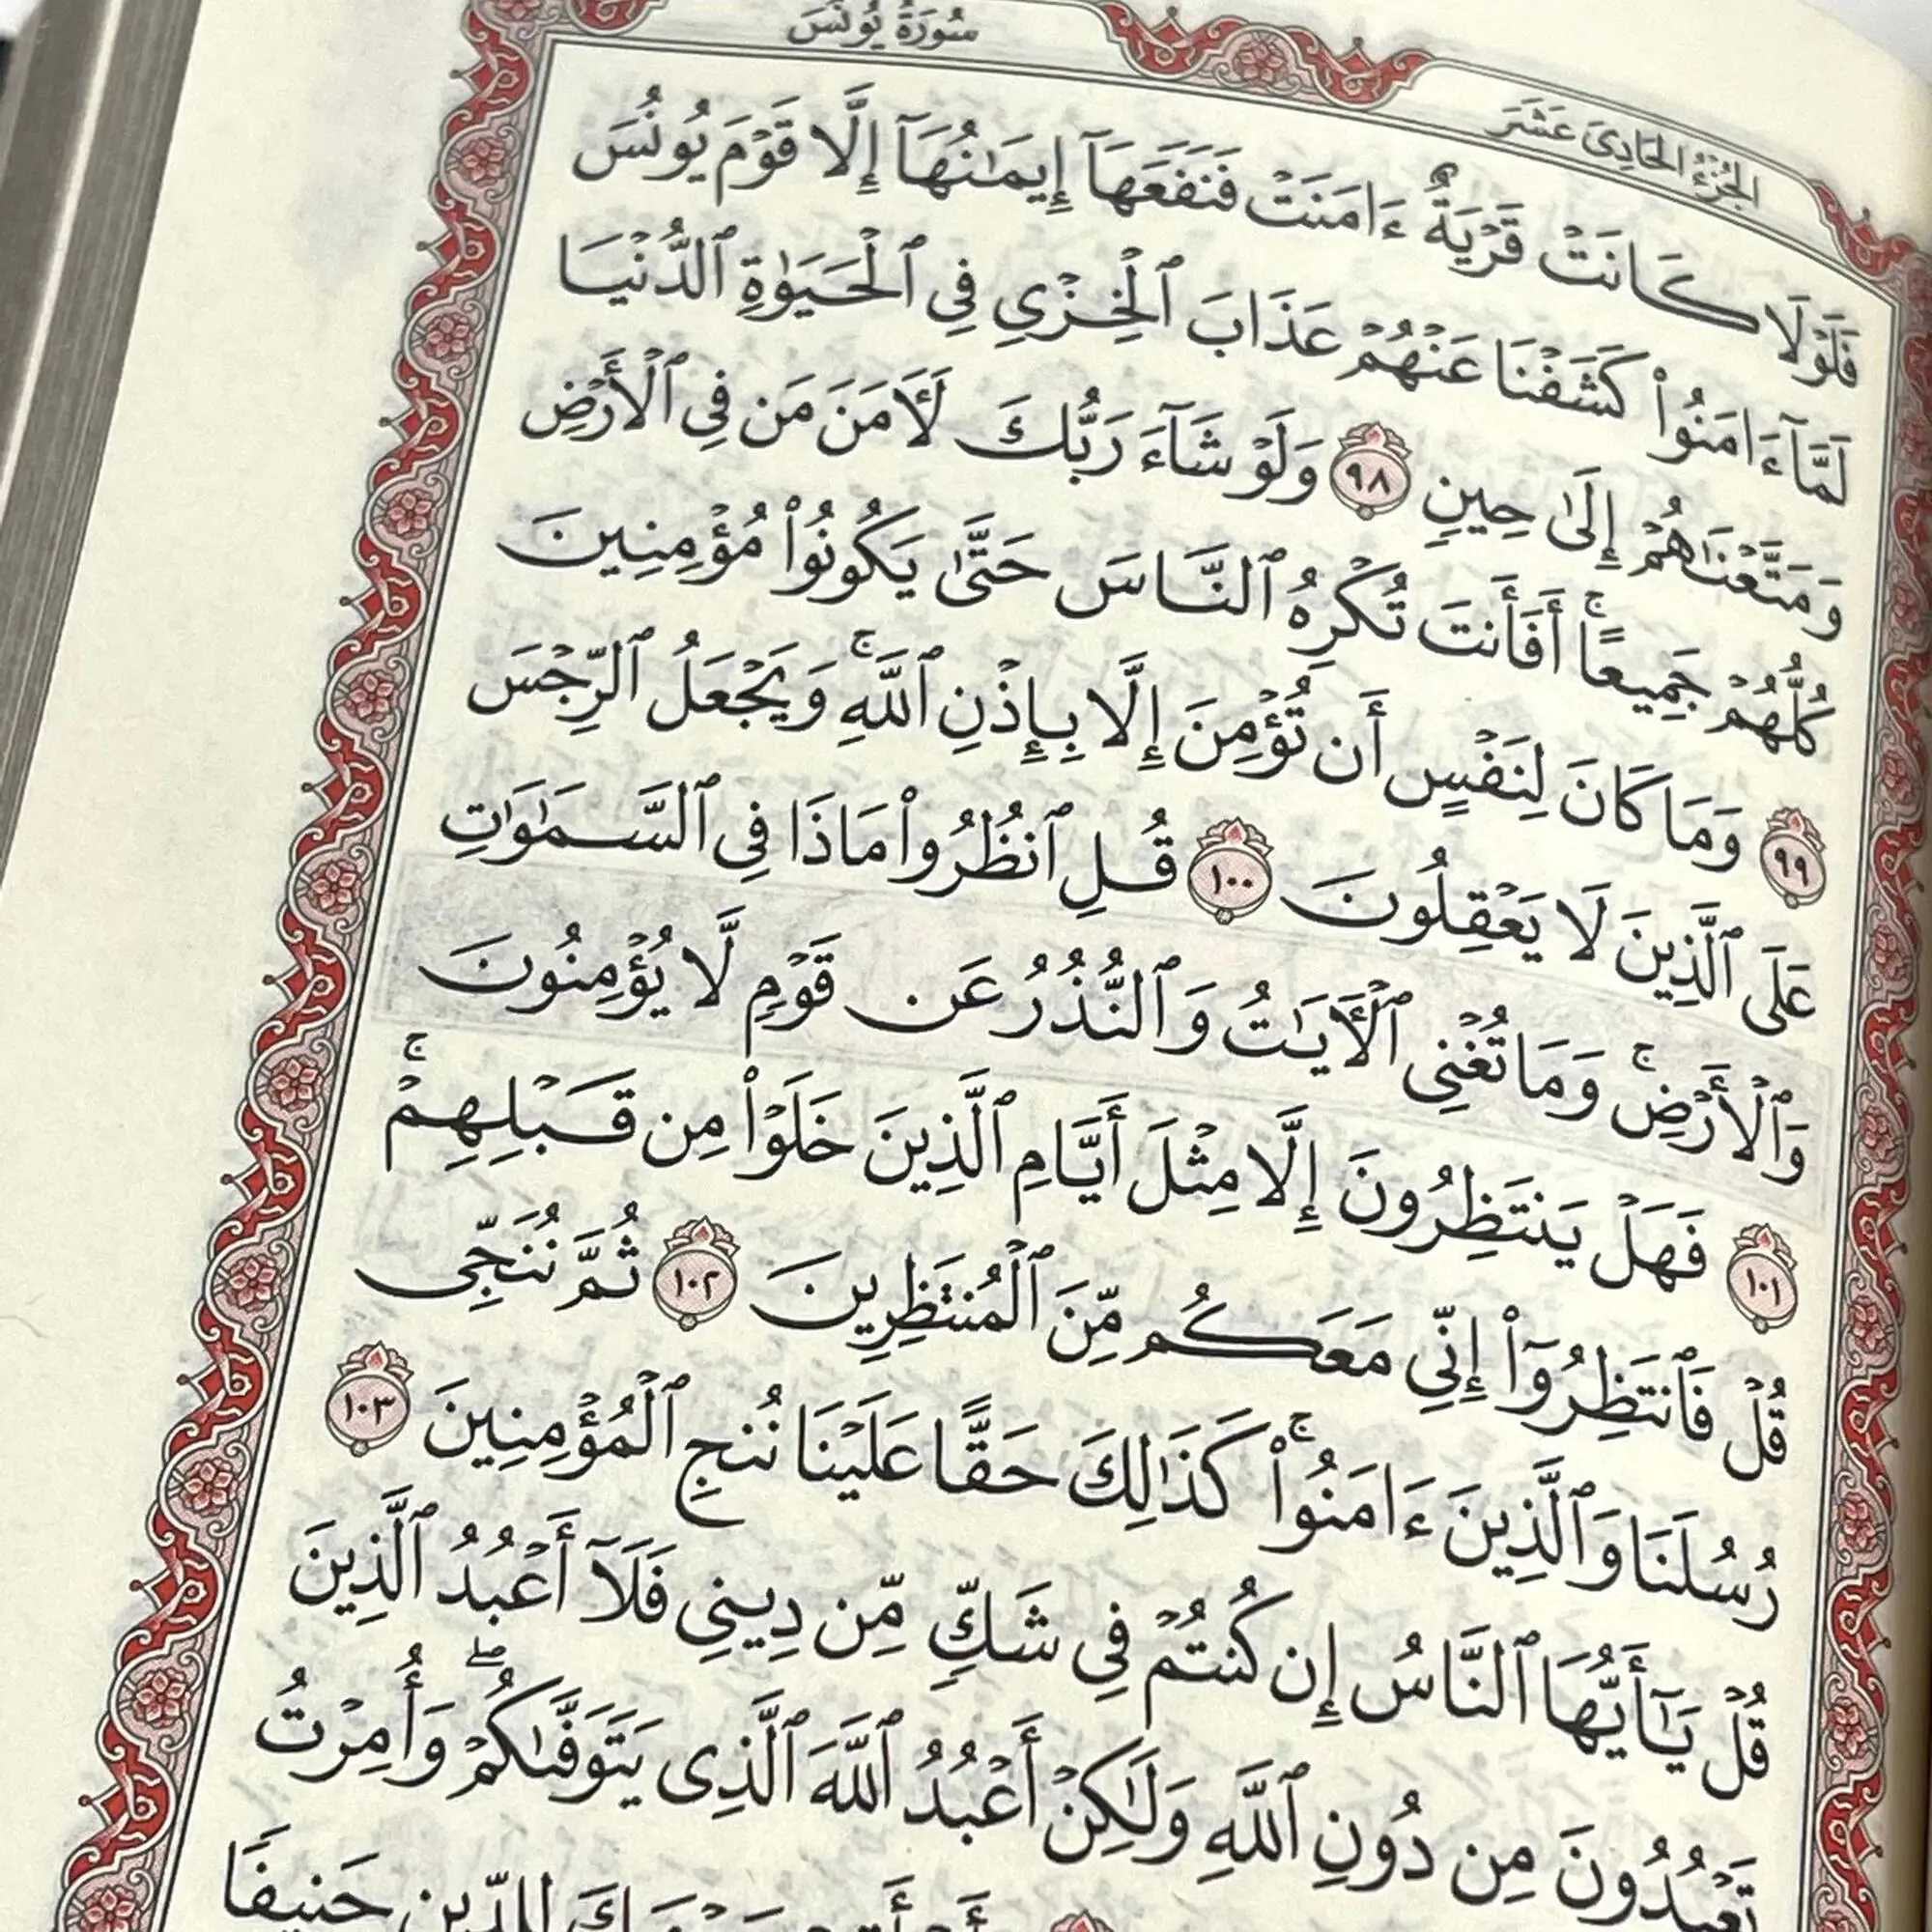 سُورَةُ يُونُسَ
الجُزْءُ الحَادِيَ عَشَرَ
فَلَوْلَا كَانَتْ قَرْيَةٌ ءَامَنَتْ فَنَفَعَهَآ إِيمَٰنُهَآ إِلَّا قَوْمَ يُونُسَ
لَمَّآ ءَامَنُوا۟ كَشَفْنَا عَنْهُمْ عَذَابَ ٱلْخِزْىِ فِى ٱلْحَيَوٰةِ ٱلدُّنْيَا
وَمَتَّعْنَٰهُمْ إِلَىٰ حِينٍ ٩٨ وَلَوْ شَآءَ رَبُّكَ لَـَٔامَنَ مَن فِى ٱلْأَرْضِ
كُلُّهُمْ جَمِيعًا ۚ أَفَأَنتَ تُكْرِهُ ٱلنَّاسَ حَتَّىٰ يَكُونُوا۟ مُؤْمِنِينَ
٩٩ وَمَا كَانَ لِنَفْسٍ أَن تُؤْمِنَ إِلَّا بِإِذْنِ ٱللَّهِ ۚ وَيَجْعَلُ ٱلرِّجْسَ
عَلَى ٱلَّذِينَ لَا يَعْقِلُونَ ١٠٠ قُلِ ٱنظُرُوا۟ مَاذَا فِى ٱلسَّمَٰوَٰتِ
وَٱلْأَرْضِ ۚ وَمَا تُغْنِى ٱلْـَٔايَٰتُ وَٱلنُّذُرُ عَن قَوْمٍ لَّا يُؤْمِنُونَ
١٠١ فَهَلْ يَنتَظِرُونَ إِلَّا مِثْلَ أَيَّامِ ٱلَّذِينَ خَلَوْا۟ مِن قَبْلِهِمْ ۚ
قُلْ فَٱنتَظِرُوٓا۟ إِنِّى مَعَكُم مِّنَ ٱلْمُنتَظِرِينَ ١٠٢ ثُمَّ نُنَجِّى
رُسُلَنَا وَٱلَّذِينَ ءَامَنُوا۟ ۚ كَذَٰلِكَ حَقًّا عَلَيْنَا نُنجِ ٱلْمُؤْمِنِينَ ١٠٣
قُلْ يَٰٓأَيُّهَا ٱلنَّاسُ إِن كُنتُمْ فِى شَكٍّ مِّن دِينِى فَلَآ أَعْبُدُ ٱلَّذِينَ
تَعْبُدُونَ مِن دُونِ ٱللَّهِ وَلَٰكِنْ أَعْبُدُ ٱللَّهَ ٱلَّذِى يَتَوَفَّىٰكُمْ ۖ وَأُمِرْتُ
لِلدِّينِ حَنِيفًا